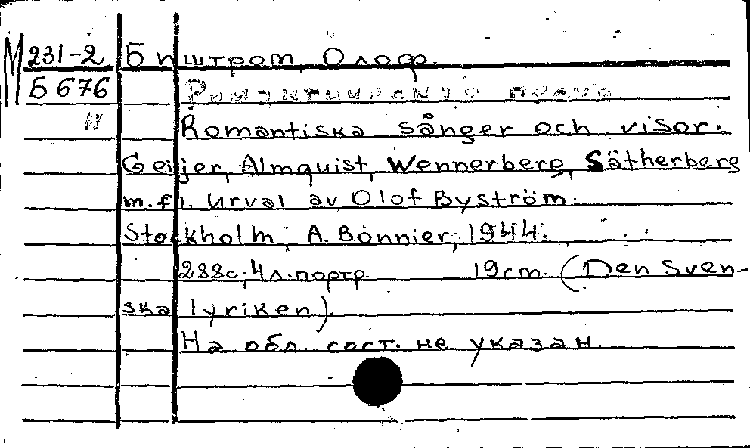 М 231-2 Биштрот, Олоф.
Б 676 Романтические песни
Romantiska sånger och visor.
Geijer, Almquist, Wennerberg, Sätherberg
m.fl. Urval av Olof Byström.
Stockholm, A. Bonnier, 1944.
288с., 4 л. портр. 19cm. (Den Sven-
ska lyriken).
На обл. сост. не указан.